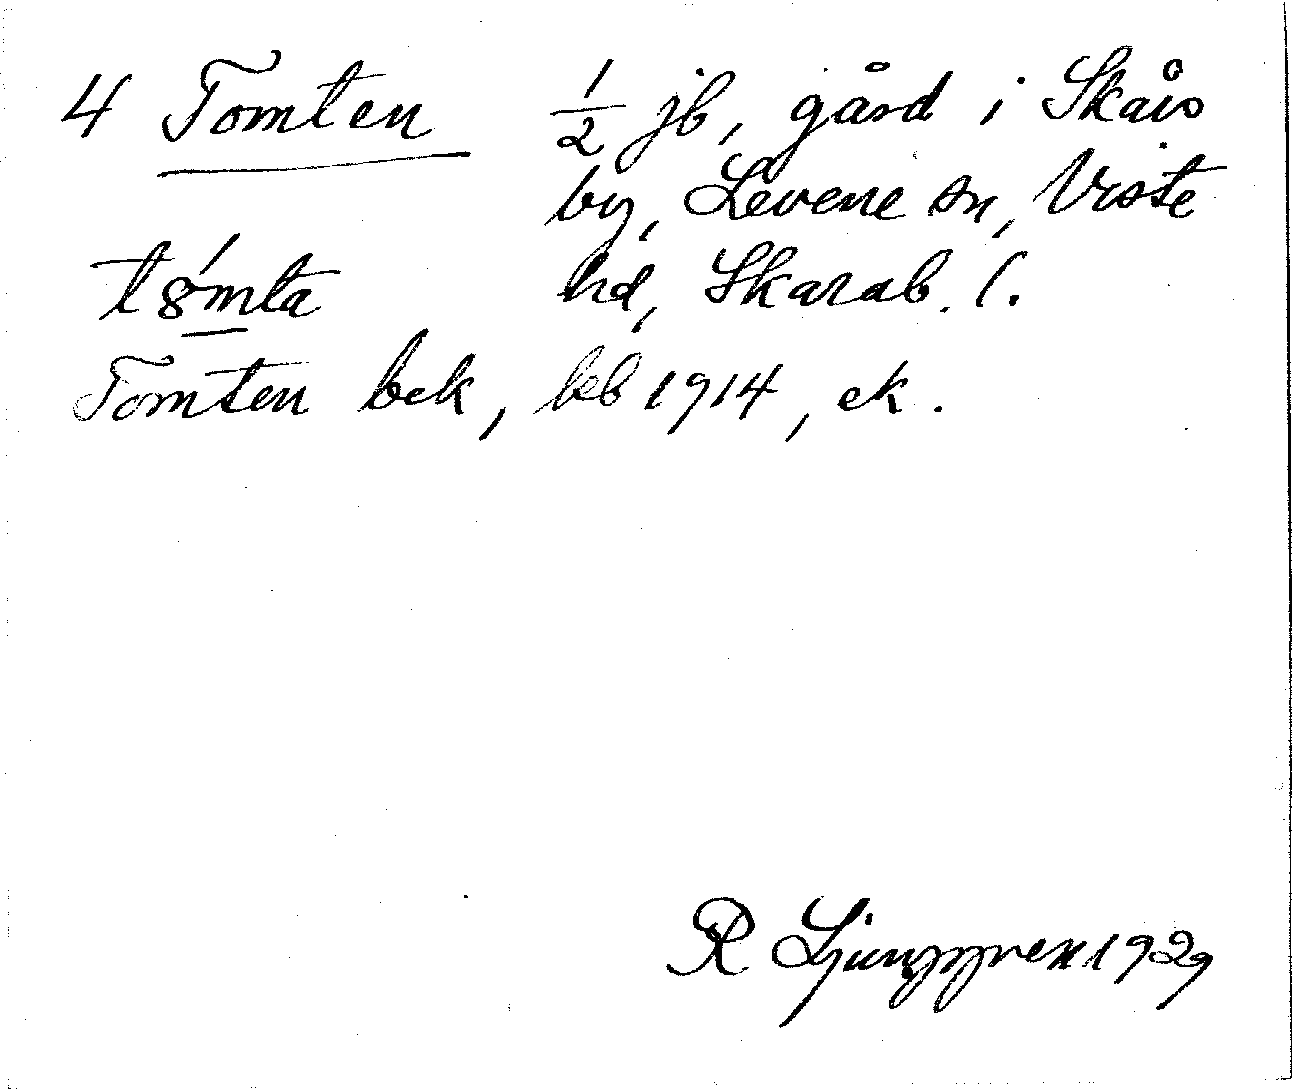 4 Tomten ½ jb, gård i Skårs
by, Levene sn, Viste
t8́mta hd, Skarab. l.
Tomten bek, kb 1914, ek.
R Ljunggren 1929